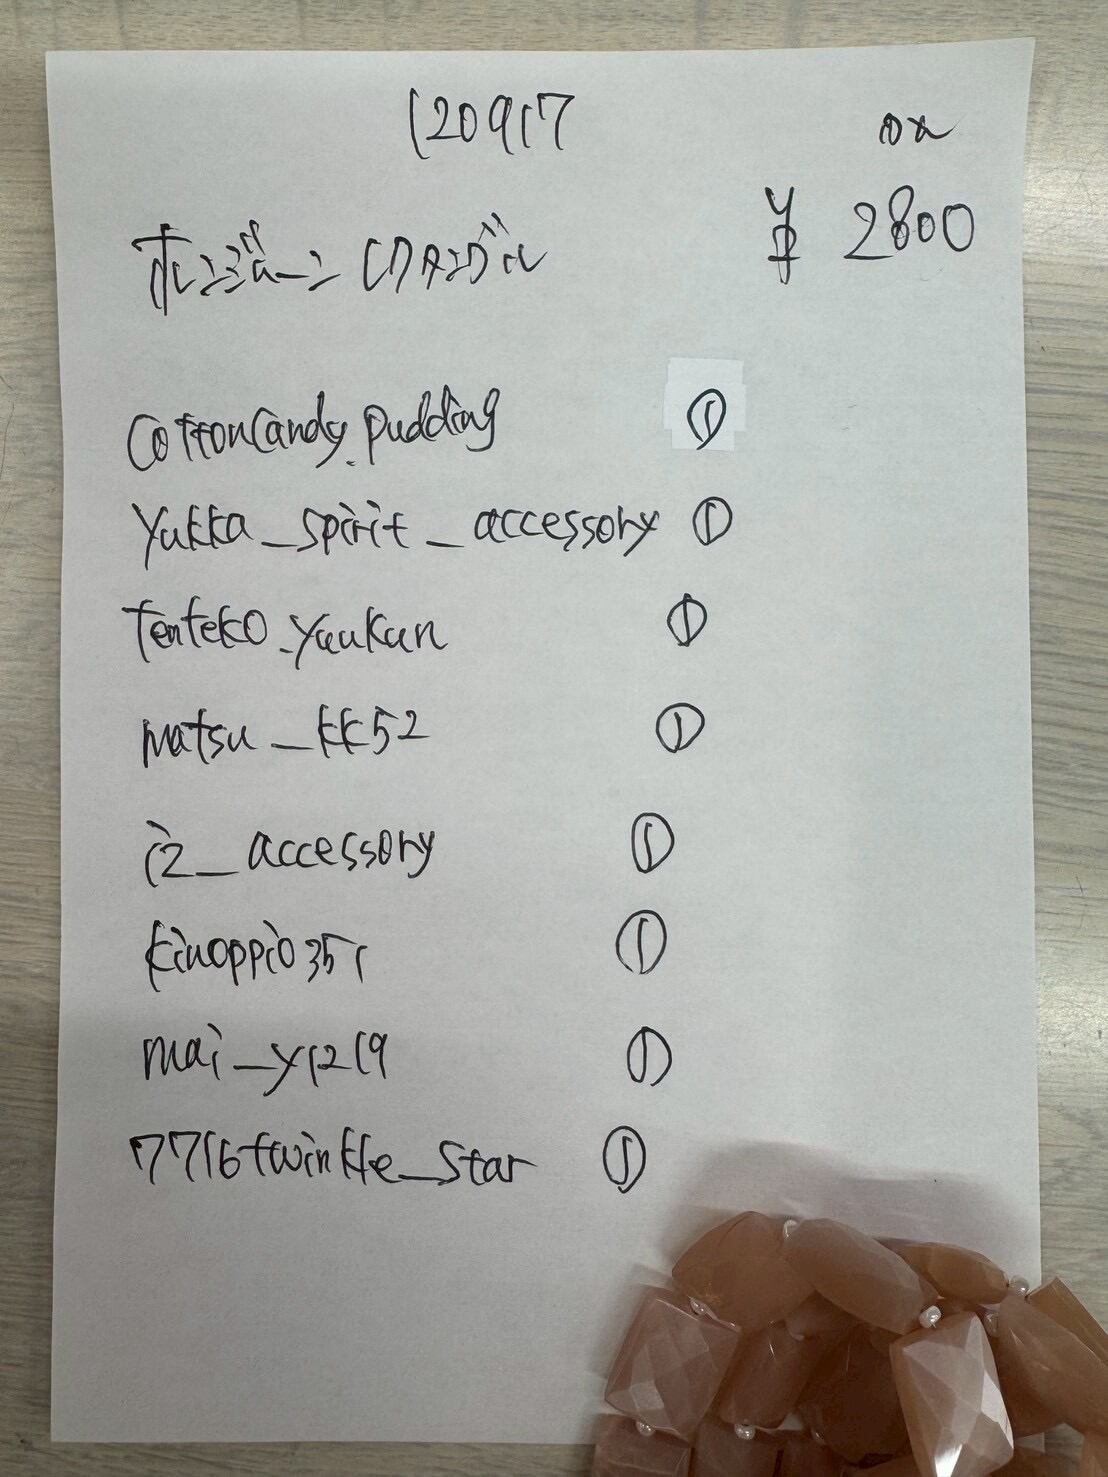 120917
¥ 2800
cottoncandy.pudding ①
yukka_spirit_accessory ①
tenteko.yuukun ①
matsu_kk52 ①
i2_accessory ①
kinoppio351 ①
mai_y1219 ①
7716twinkle_star ①